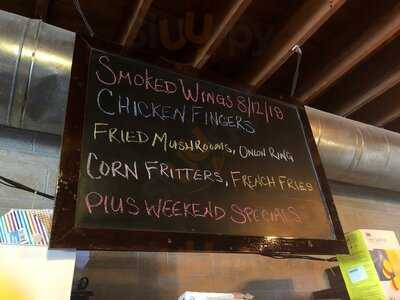 Smoked Wings 8/12/18
Chicken Fingers
Fried Mushrooms, Onion Ring
Corn Fritters, French Fries
Plus Weekend Specials